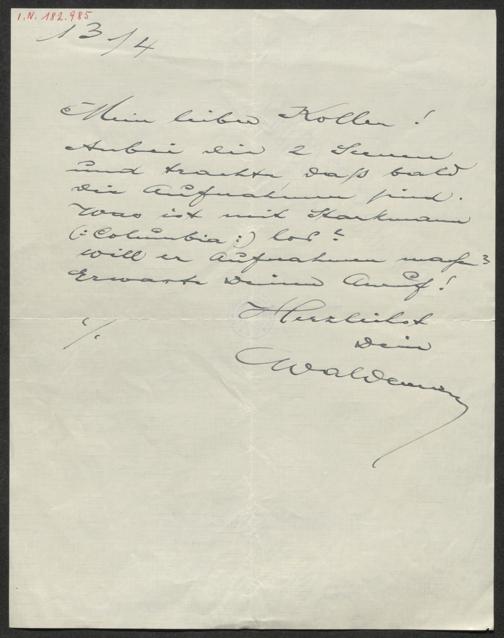 I.N. 182.985
13/4
Mein lieber Koller!
Anbei die 2 Scenen
und trachte daß bald
die Aufnahmen sind.
Was ist mit Starkmann
(:Columbia:) los?
will er Aufnahmen mach?
Erwarte Deinen Anruf!
Herzlichst
Dein
Waldemar